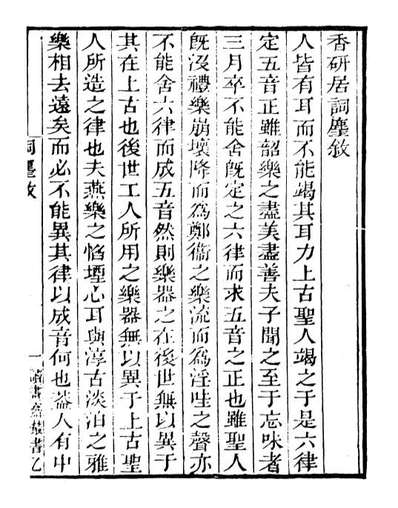 香研居詞塵敘
人皆有耳而不能竭其耳力上古聖人竭之于是六律
定五音正雖韶樂之盡美盡善夫子聞之至于忘味者
三月卒不能舍旣定之六律而求五音之正也雖聖人
旣沒禮樂崩壞降而為鄭衞之樂流而為淫哇之聲亦
不能舍六律而成五音然則樂器之在後世無以異于
其在上古也後世工人所用之樂器無以異于上古聖
人所造之律也夫燕樂之慆堙心耳與淳古淡泊之雅
樂相去遠矣而必不能異其律以成音何也葢人有中
詞塵敘
一
讀畫齋叢書乙